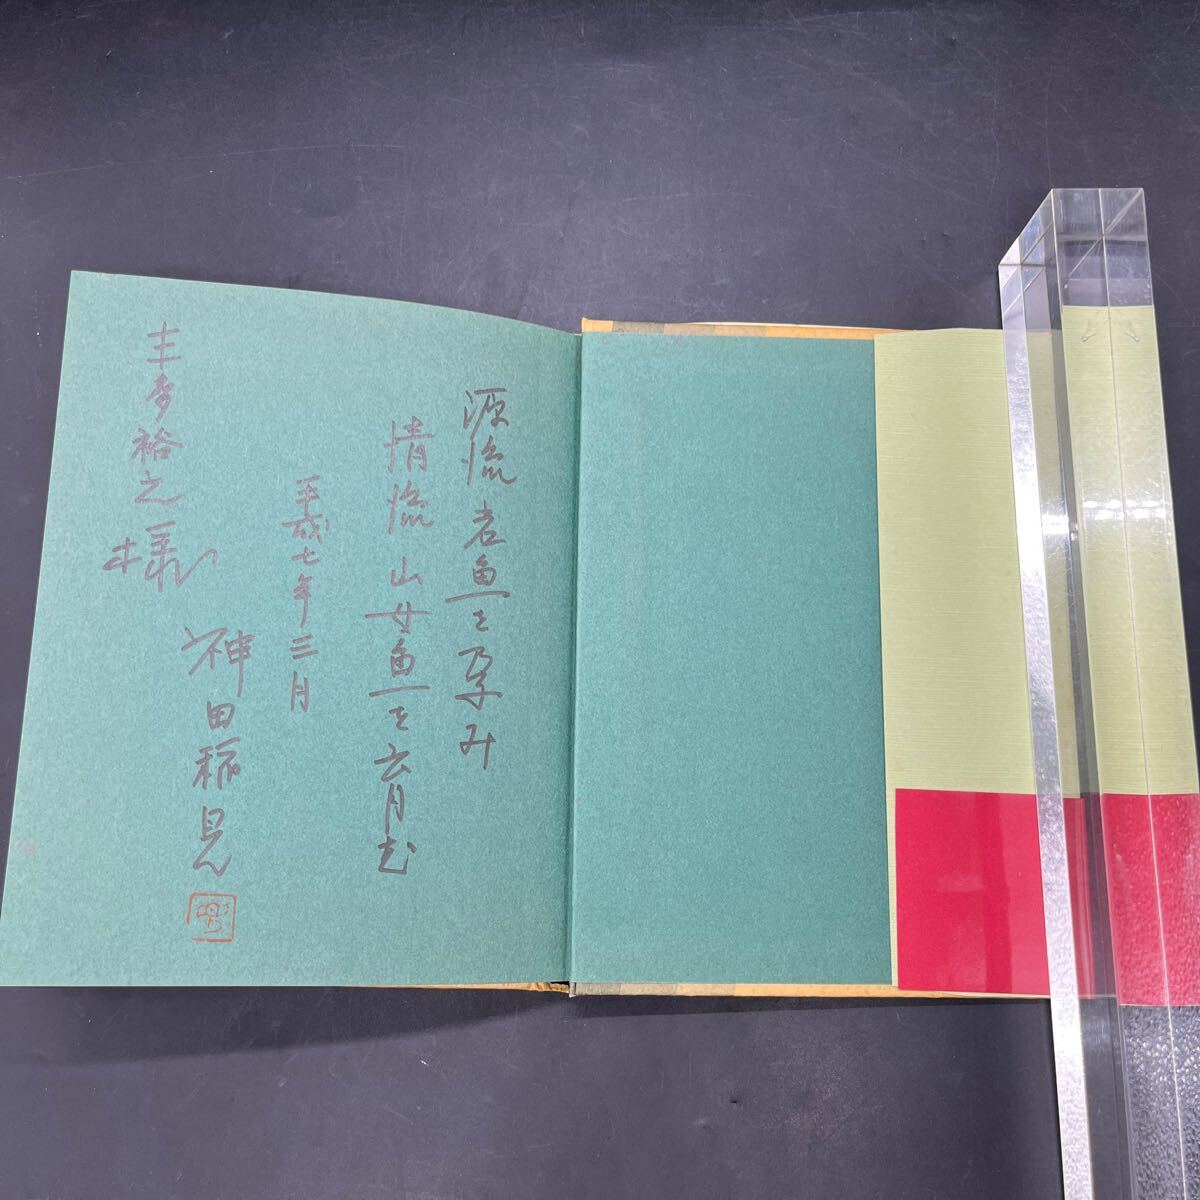 源流岩魚を孕み
清流山女魚を育む
平成七年三月
神田
裕之様